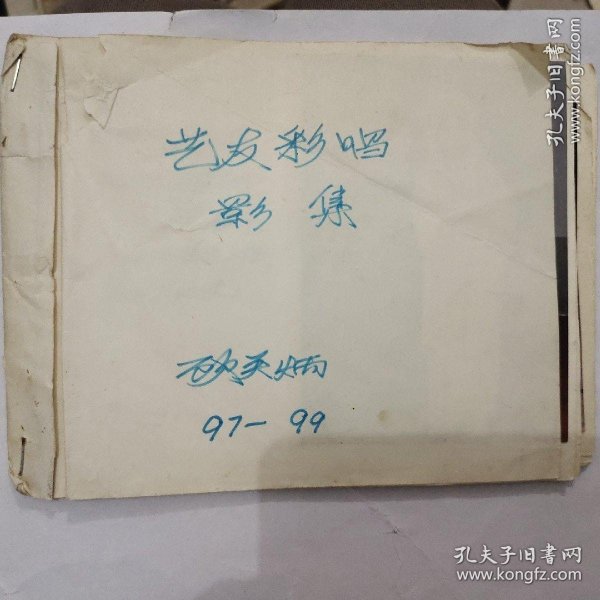 孔夫子旧书网
www.kongfz.com
艺友彩唱
影集
天炳
97-99
孔夫子旧书网
www.kongfz.com